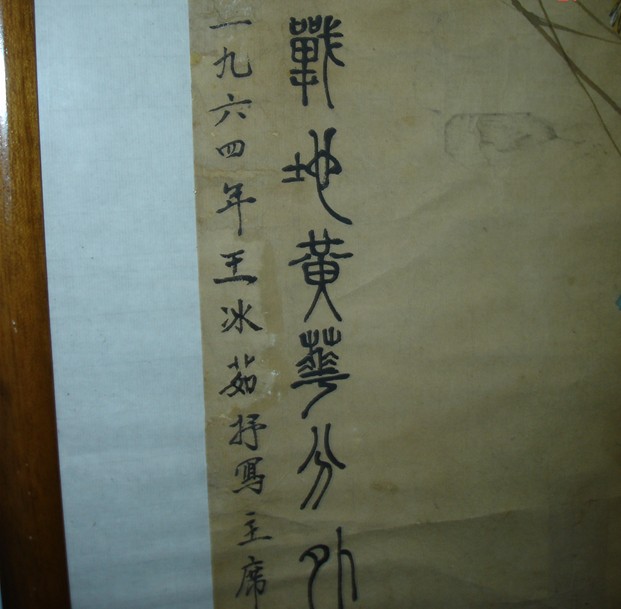 戰地黃華分外
一九六四年王冰茹抒寫主席